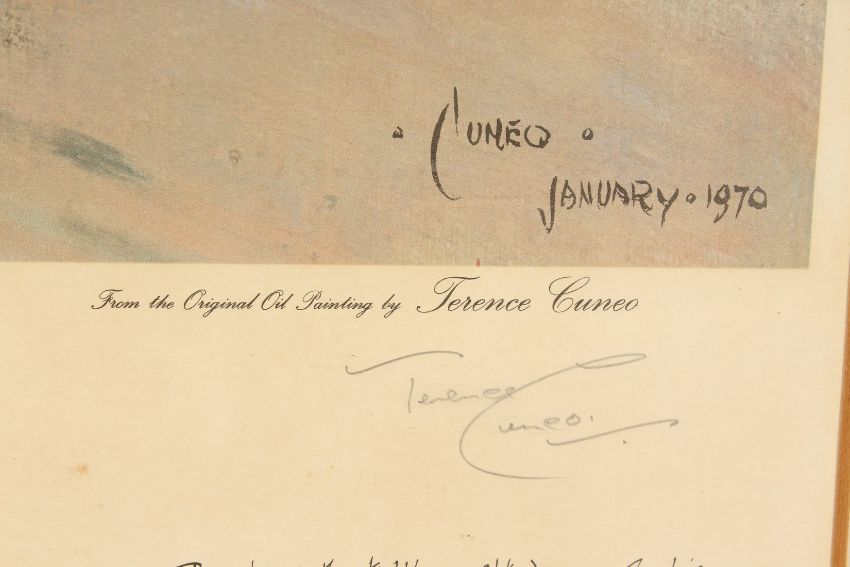 • CUNEO •
JANUARY • 1970
From the Original Oil Painting by Terence Cuneo
Terence
Cuneo.